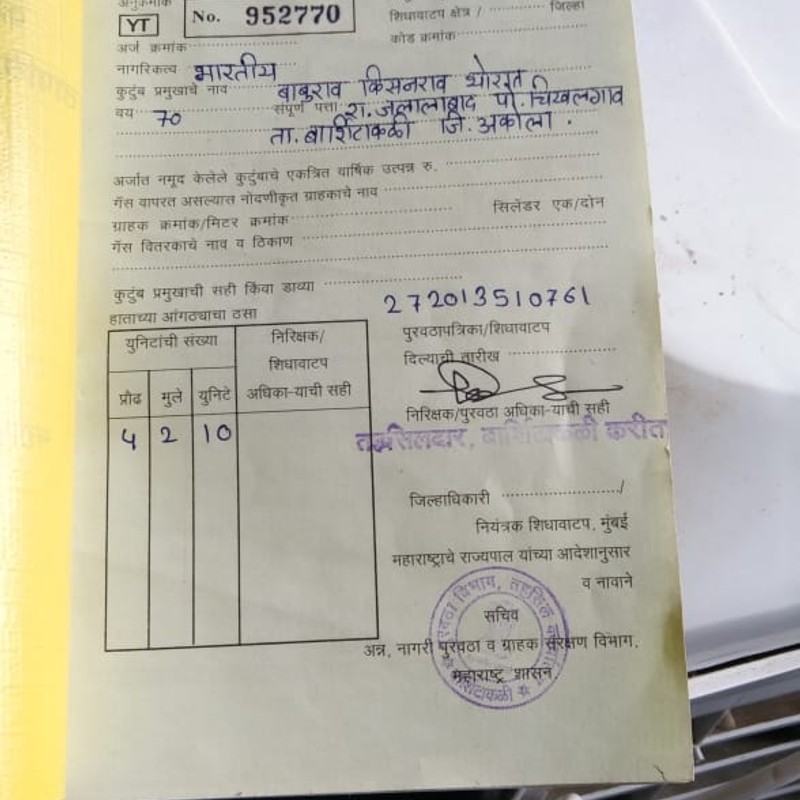 अनुक्रमांक
YT No. 952770
शिधावाटप क्षेत्र / जिल्हा
कोड क्रमांक
अर्ज क्रमांक
नागरिकत्व भारतीय
कुटुंब प्रमुखाचे नाव बाबुराव किसनराव थोरात
वय 70 संपूर्ण पत्ता रा. जलालाबाद पो. चिखलगाव
ता. बार्शिटाकळी जि. अकोला.
अर्जात नमूद केलेले कुटुंबाचे एकत्रित वार्षिक उत्पन्न रु.
गॅस वापरत असल्यास नोंदणीकृत ग्राहकाचे नाव
ग्राहक क्रमांक/मिटर क्रमांक सिलेंडर एक/दोन
गॅस वितरकाचे नाव व ठिकाण
कुटुंब प्रमुखाची सही किंवा डाव्या
हाताच्या आंगठ्याचा ठसा
272013510761
युनिटांची संख्या
निरिक्षक/
शिधावाटप
अधिका-याची सही
प्रौढ मुले युनिटे
५ 2 10
पुरवठापत्रिका/शिधावाटप
दिल्याची तारीख
निरिक्षक/पुरवठा अधिका-याची सही
तहसिलदार, बार्शिटाकळी करीता
जिल्हाधिकारी /
नियंत्रक शिधावाटप, मुंबई
महाराष्ट्राचे राज्यपाल यांच्या आदेशानुसार
व नावाने
सचिव
अन्न, नागरी पुरवठा व ग्राहक संरक्षण विभाग,
महाराष्ट्र शासन.
पुरवठा विभाग, तहसिल
बार्शिटाकळी